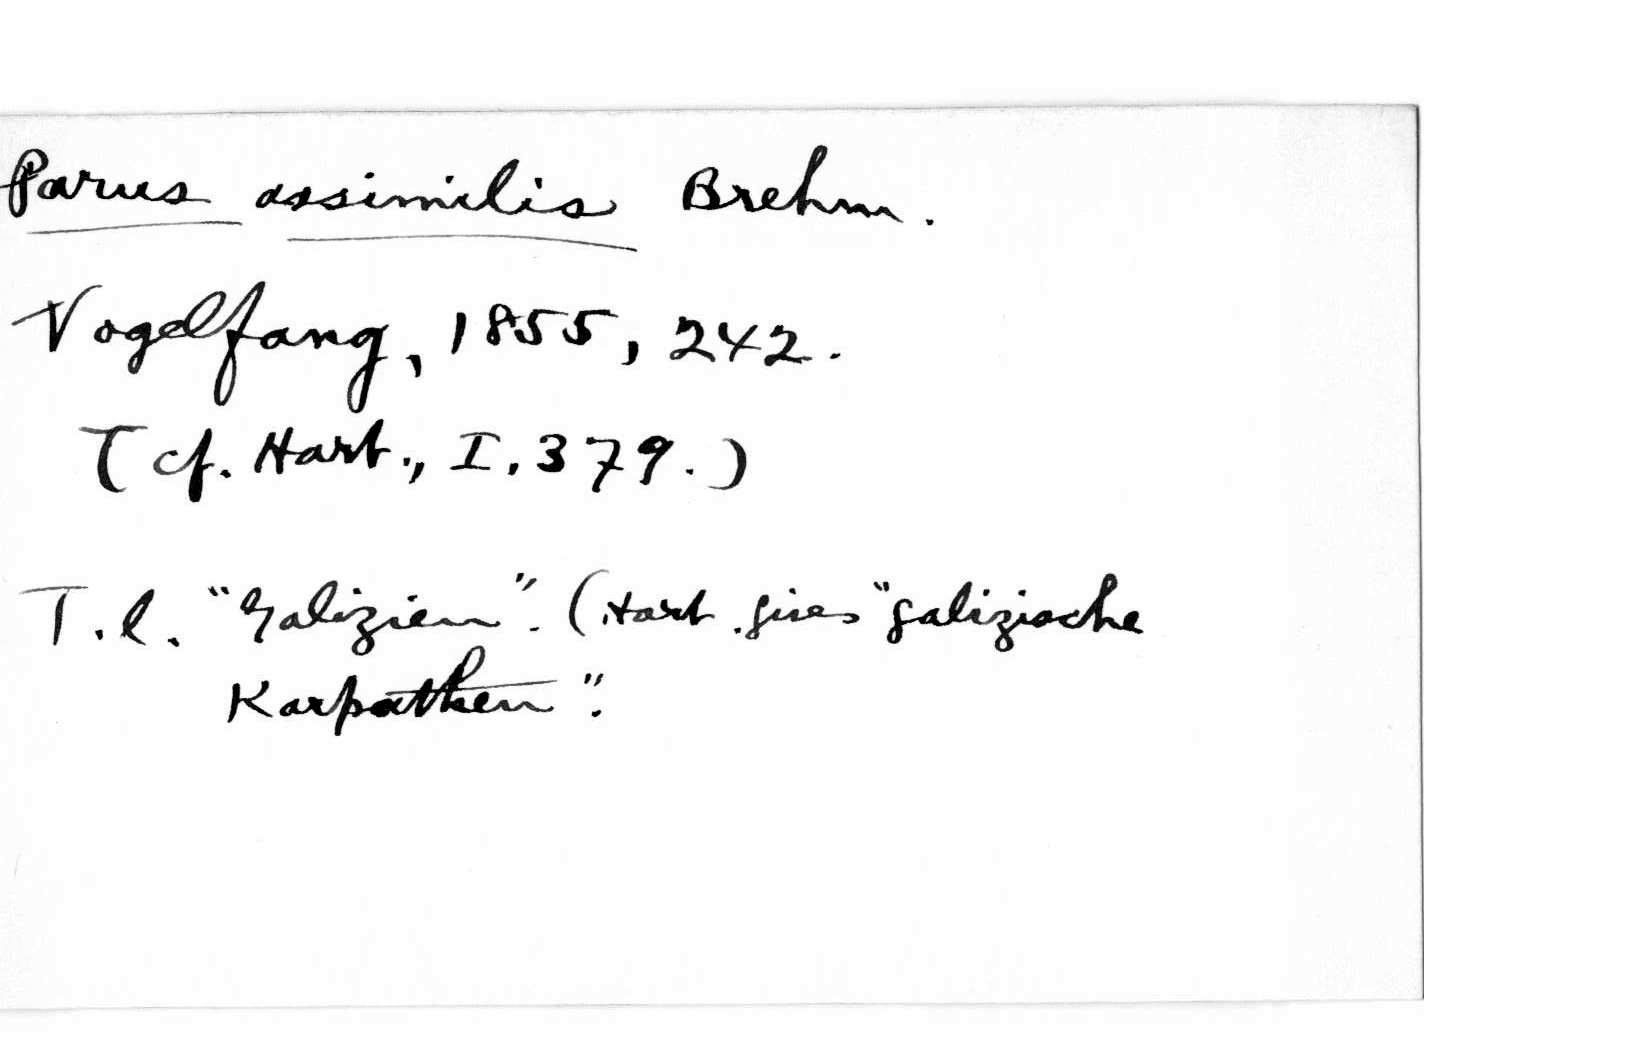 Parus assimilis Brehm.
Vogelfang, 1855, 242.
(cf. Hart., I, 379.)
T.l. "Galizien". (Hart. gives "galizische
Karpathen".